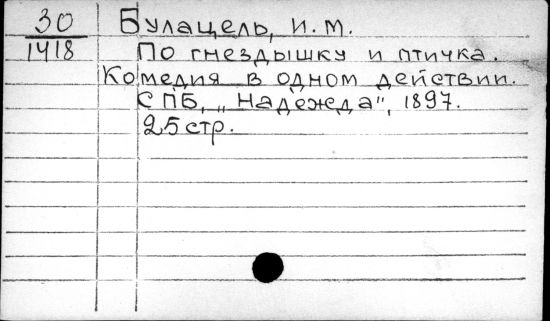 30 Булацель, И.М.
1418 По гнездышку и птичка.
Комедия в одном действии.
СПБ, „Надежда", 1897.
25 стр.